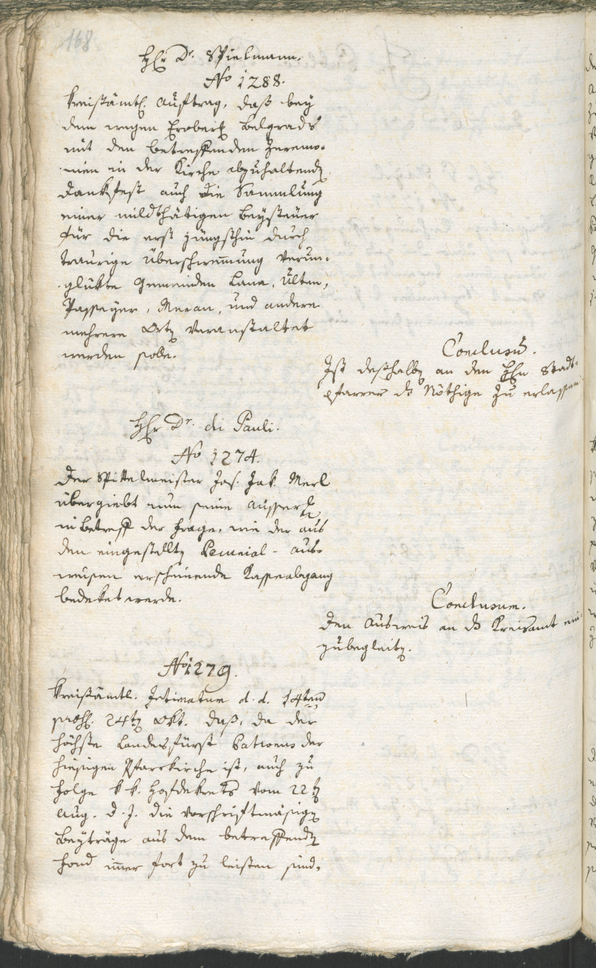 168
H[er]r Dr. Spielmann.
No 1288.
Kreisämtl. Auftrag, daß bey
dem wegen Erober[ung] Belgrads
mit den betreffenden Zeremo-
nien in der Kirche abzuhaltend[en]
Dankfest auch die Sammlung
einer mildthätigen Beysteuer
für die erst jüngsthin durch
traurige Überschwemmung verun-
glükte Gemeinden Lana, Ulten,
Passeyer, Meran, und andere
mehrere Ort[e] veranstaltet
werden solle.
Conclusū.
Ist deßhalb an den H[er]rn Stadt-
pfarrer ds Nöthige zu erlassen
H[er]r Dr. di Pauli.
No 1274.
Der Spitelmeister Jos. Jak. Merl
übergiebt nun seine
in betreff der Frage, wie der aus
den eingestellt[en] - aus-
weisen erscheinende Kassaabgang
bedeket werde.
Conclusum.
Den Ausweis an ds Kreisamt
zubegleit[en].
No 1279.
Kreisämtl. Intimatum d. d. 14ten
24t[en] Okt. daß, da der
höchste Landesfürst Patronus der
hiesigen Pfarrkirche ist, auch zu
Folge k. k. Hofdekrets vom 22t[en]
Aug. d. J. die vorschriftmäsig[en]
Beyträge aus dem betreffend[en]
Fond immer fort zu leisten sind,